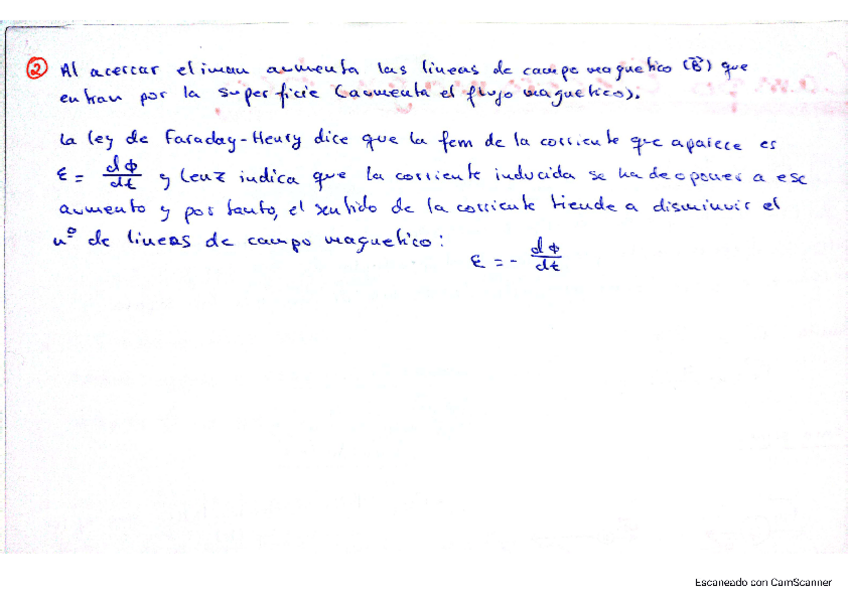 ② Al acercar el iman aumenta las lineas de campo magnetico (B⃗) que
entran por la superficie (aumenta el flujo magnetico).
La ley de Faraday-Henry dice que la fem de la corriente que aparece es
ε = dΦ/dt y Lenz indica que la corriente inducida se ha de oponer a ese
aumento y por tanto, el sentido de la corriente tiende a disminuir el
nº de lineas de campo magnetico:
ε = - dΦ/dt
Escaneado con CamScanner